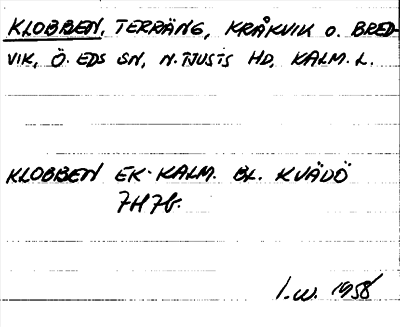 KLOBBEN, TERRÄNG, KRÅKVIK O. BRED-
VIK, Ö. EDS SN, N. TJUSTS HD, KALM. L.
KLOBBEN EK. KALM. BL. KVÄDÖ
7H7b.
I.W. 1958